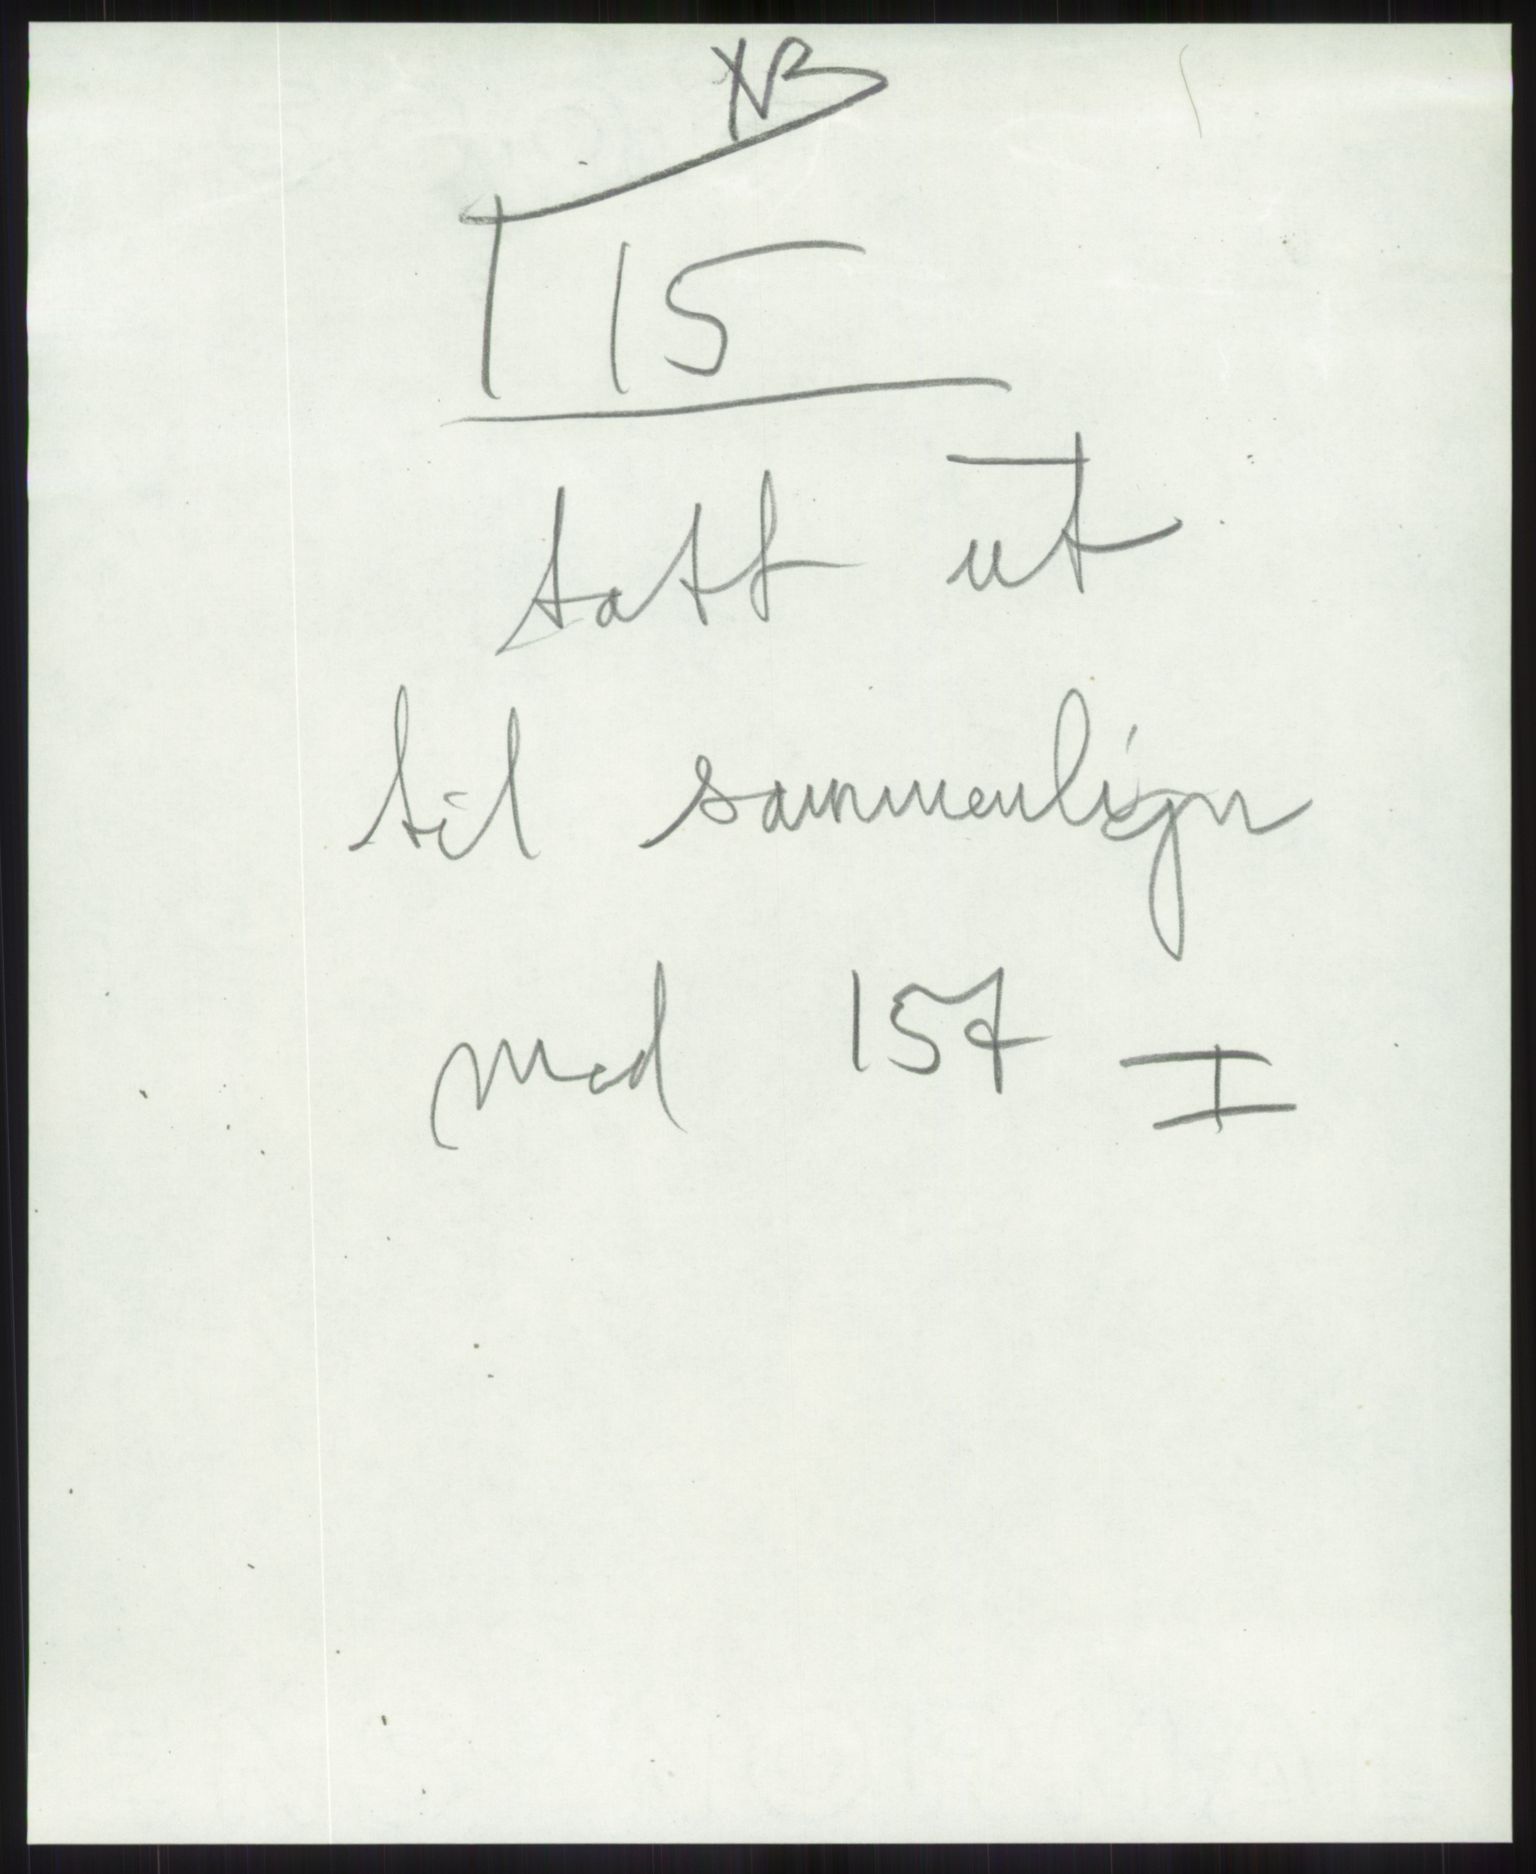 NB
T 15
tatt ut
til sammenlign
med 157 I